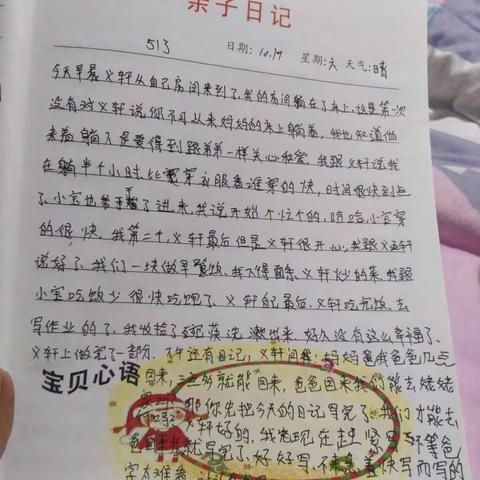 亲子日记
513 日期: 10.17 星期: 六 天气: 晴
今天早晨义轩从自己房间来到了我的房间躺在了床上,这是第一次
没有对义轩说你不可以来妈妈的床上躺着,我也知道他
来着躺下是要得到跟弟弟一样关心和爱,我跟义轩说我
在躺半个小时,比赛穿衣服看谁穿的快,时间很快到点
了,小宝也参于了进来,我说开始个忙个的,哈哈小宝穿
的很快,我第二个,义轩最后但是义轩很开心,我跟义轩
说好了,我们一块做早餐饭,我下得面条义轩炒的菜,我跟
小宝吃饭少很快吃饱了,义轩自己最后,义轩吃完饭,去
写作业的了,我收拾了碗筷洗漱出来,好久没有这么幸福了,
义轩上做完了一部分,还有日记,义轩问我:妈妈爸爸几点
宝贝心语
回来,三点多就能回来,爸爸回来我们能去姥姥
那你先把今天的日记写完了,我们才能去
义轩好的,我现在赶紧写等爸
爸回来就写完了,好好写,不着急快写而写的
字太难看